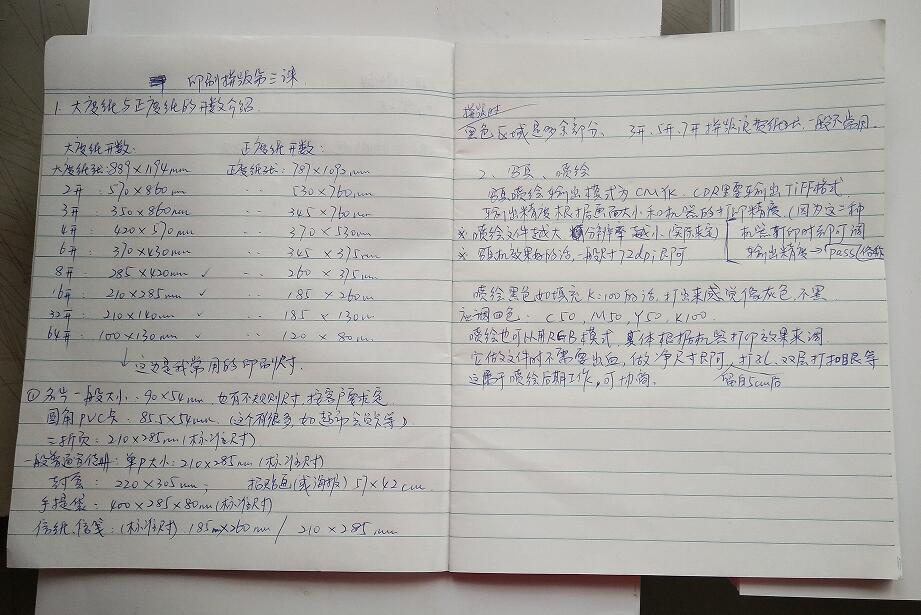 印刷拼版第三课
1. 大度纸与正度纸的开数介绍.
大度纸开数: 正度纸开数:
大度纸张:889×1194mm 正度纸张: 787×1092mm
2开 : 570×860mm ·· 530×760mm
3开 : 350×860mm ·· 345×760mm
4开 : 420×570mm ·· 370×530mm
6开 : 370×430mm ·· 345×375mm
8开 : 285×420mm ✓ ·· 260×375mm
16开 : 210×285mm ✓ ·· 185×260mm
32开 : 210×140mm ✓ ·· 185×130mm
64开 : 100×130mm ✓ ·· 120×80mm
↓ 这边是我常用的印刷尺寸.
① 名片一般大小: 90×54mm 也有不规则尺寸, 按客户要求定
圆角PVC卡: 85.5×54mm. (这个有很多如超市会员卡等)
三折页: 210×285mm (标准尺寸)
一般普通宣传册: 单P大小: 210×285mm (标准尺寸)
封套: 220×305mm; 招贴画(或海报) 57×42cm
手提袋: 400×285×80mm (标准尺寸)
信纸、信笺: (标准尺寸) 185mm×260mm / 210×285mm
拼版时
黑色区域是多余部分、 3开、5开、7开拼版浪费纸张, 一般不常用.
2、写真、喷绘
写真喷绘输出模式为CMYK. CDR里要输出TIFF格式
输出精度根据画面大小和机器的打印精度, (因为这三种
* 喷绘文件越大 分辨率越小(实际来定) 机器打印时都可调
* 写真机效果好的话, 一般尺寸72dpi即可 输出精度→pass(俗称)
喷绘黑色如填充K:100的话, 打出来感觉像灰色, 不黑
应调四色: C50, M50, Y50, K100.
喷绘也可以用RGB模式, 具体根据机器打印效果来调
它做文件时不需要出血, 做净尺寸即可, 打孔、双层打扣眼等
这属于喷绘后期工作, 可协商. 留白5cm后